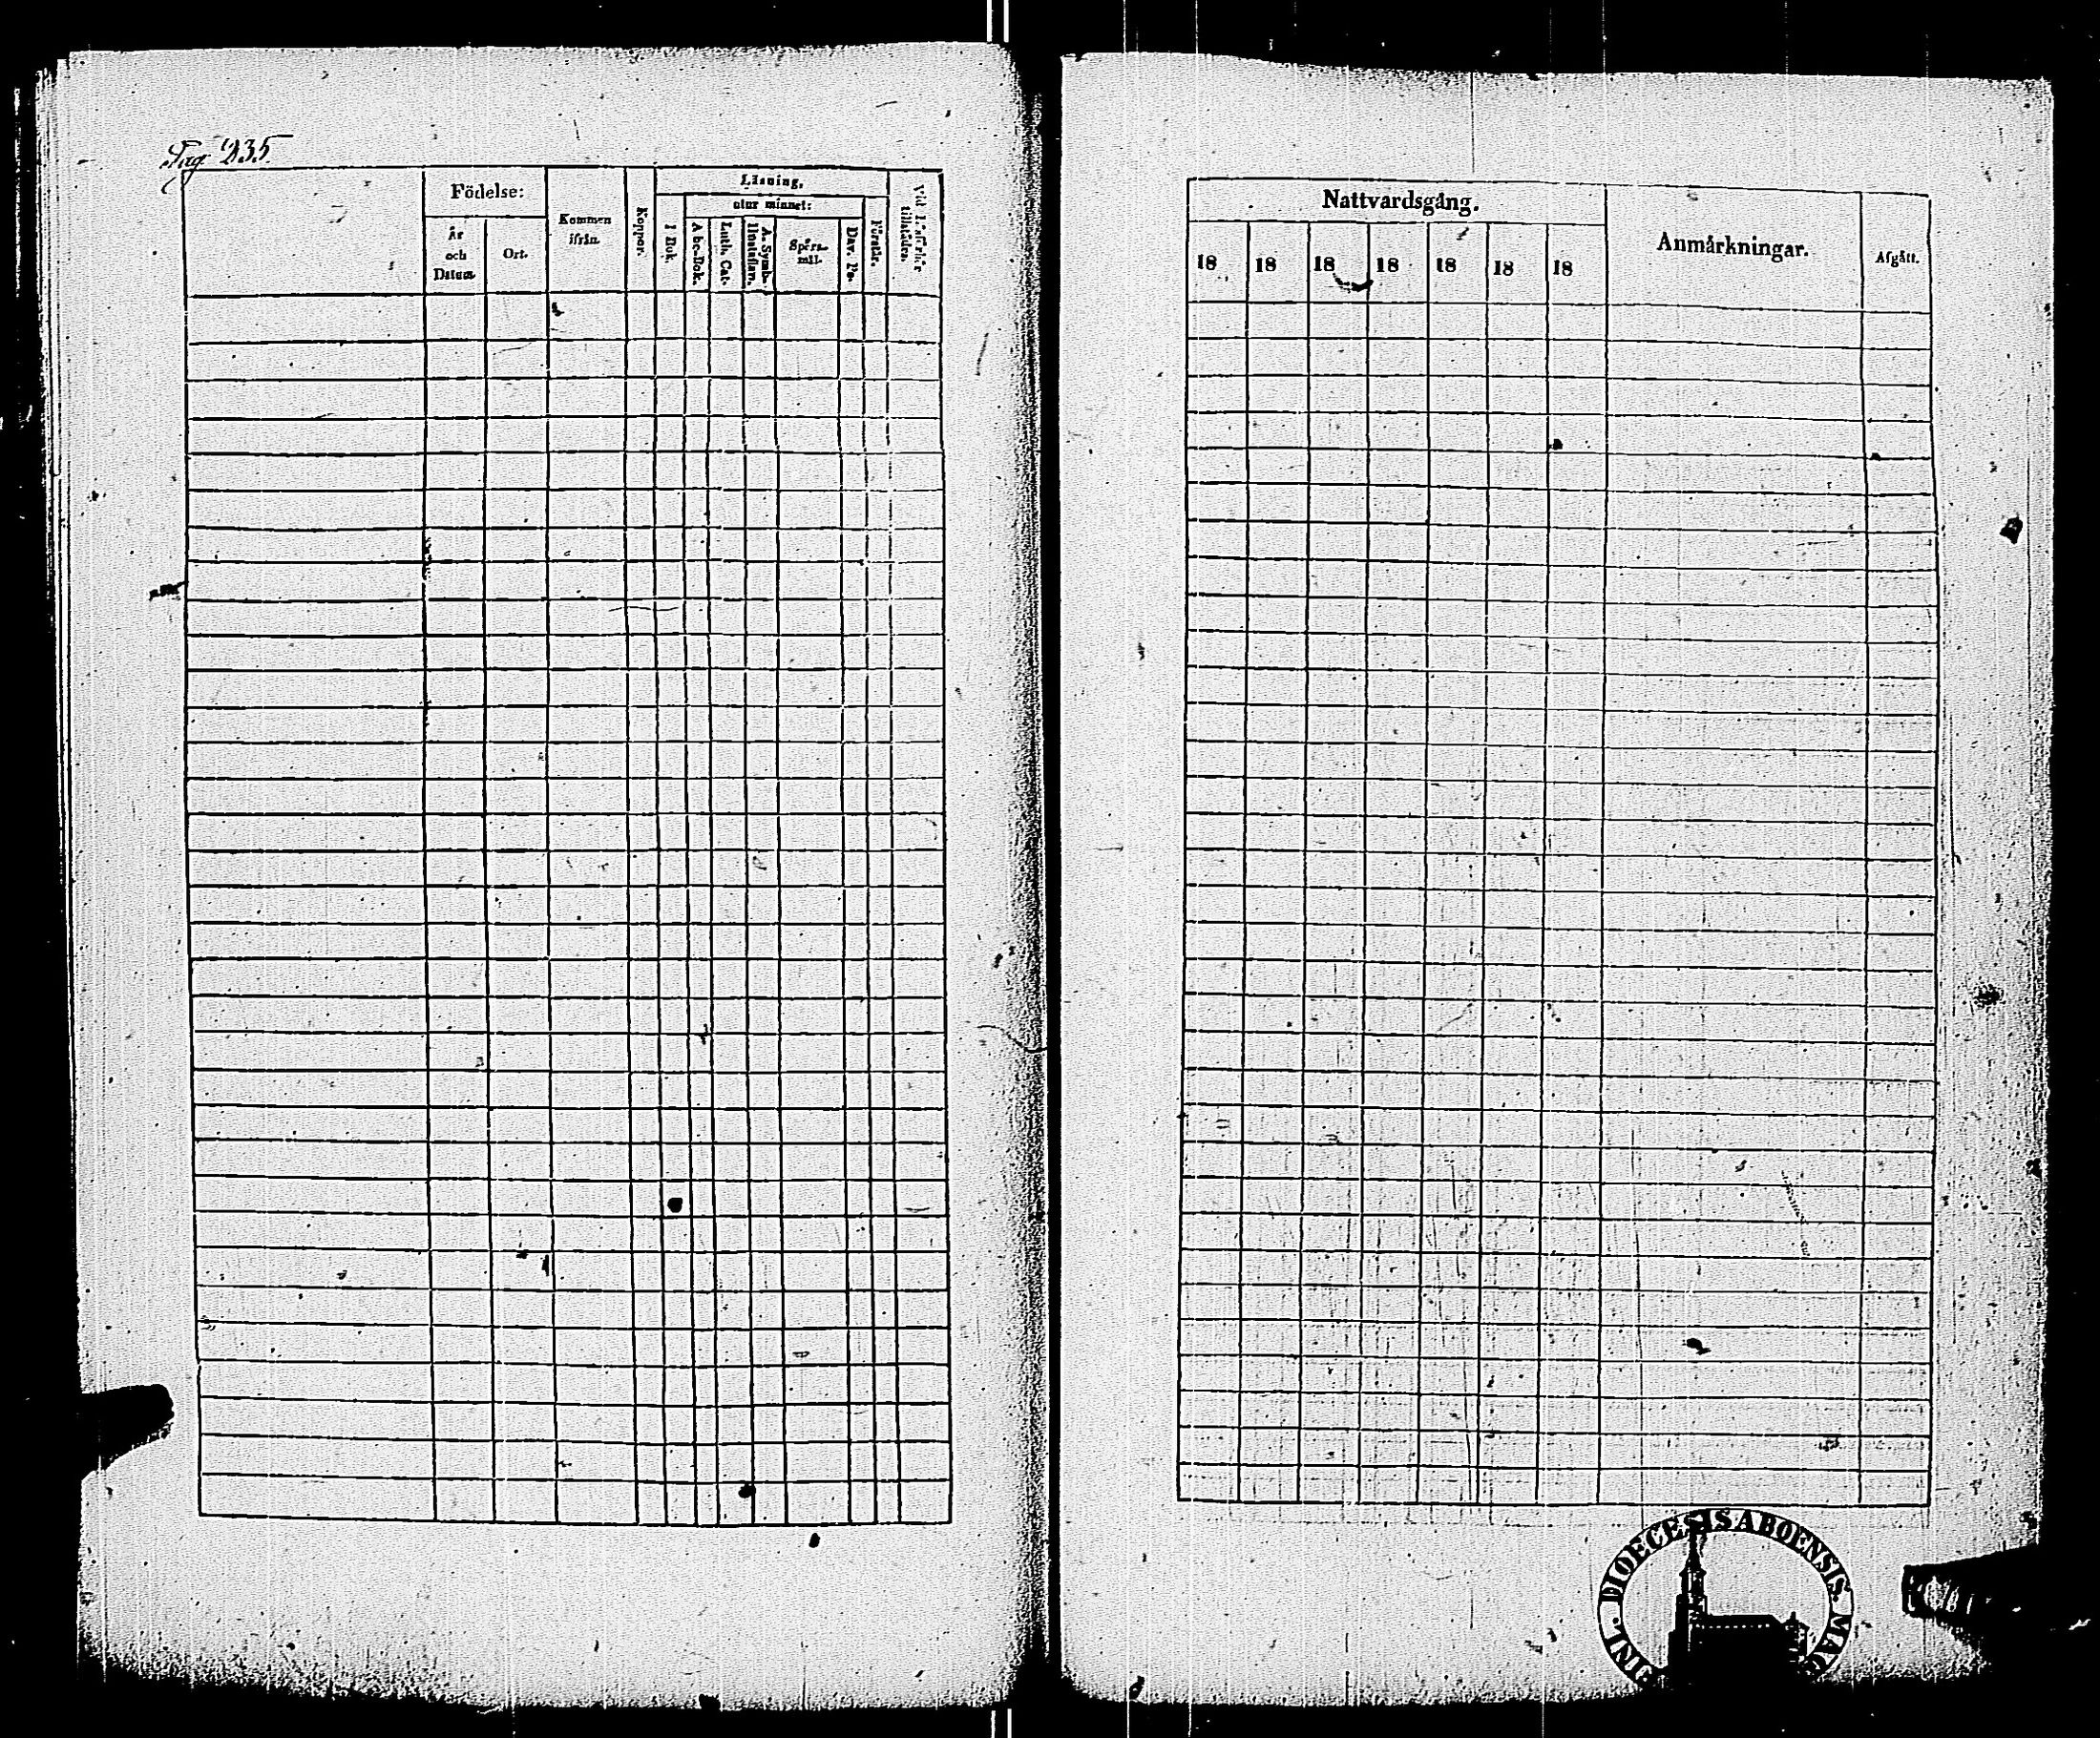 Pag 235
Födelse:
År och Datum
Ort.
Kommen ifrån.
Koppor.
Läsning.
utur minnet:
I Bok.
Abc-Bok.
Luth. Cat.
A. Symb.
Hustaflan.
Spörsmål.
Dav. Ps.
Förstår.
Vid Läsförhör tillstädes.
Nattvardsgång.
18 18 18 18 18 18 18
Anmärkningar.
Afgått.
DIOECESIS ABOENSIS.